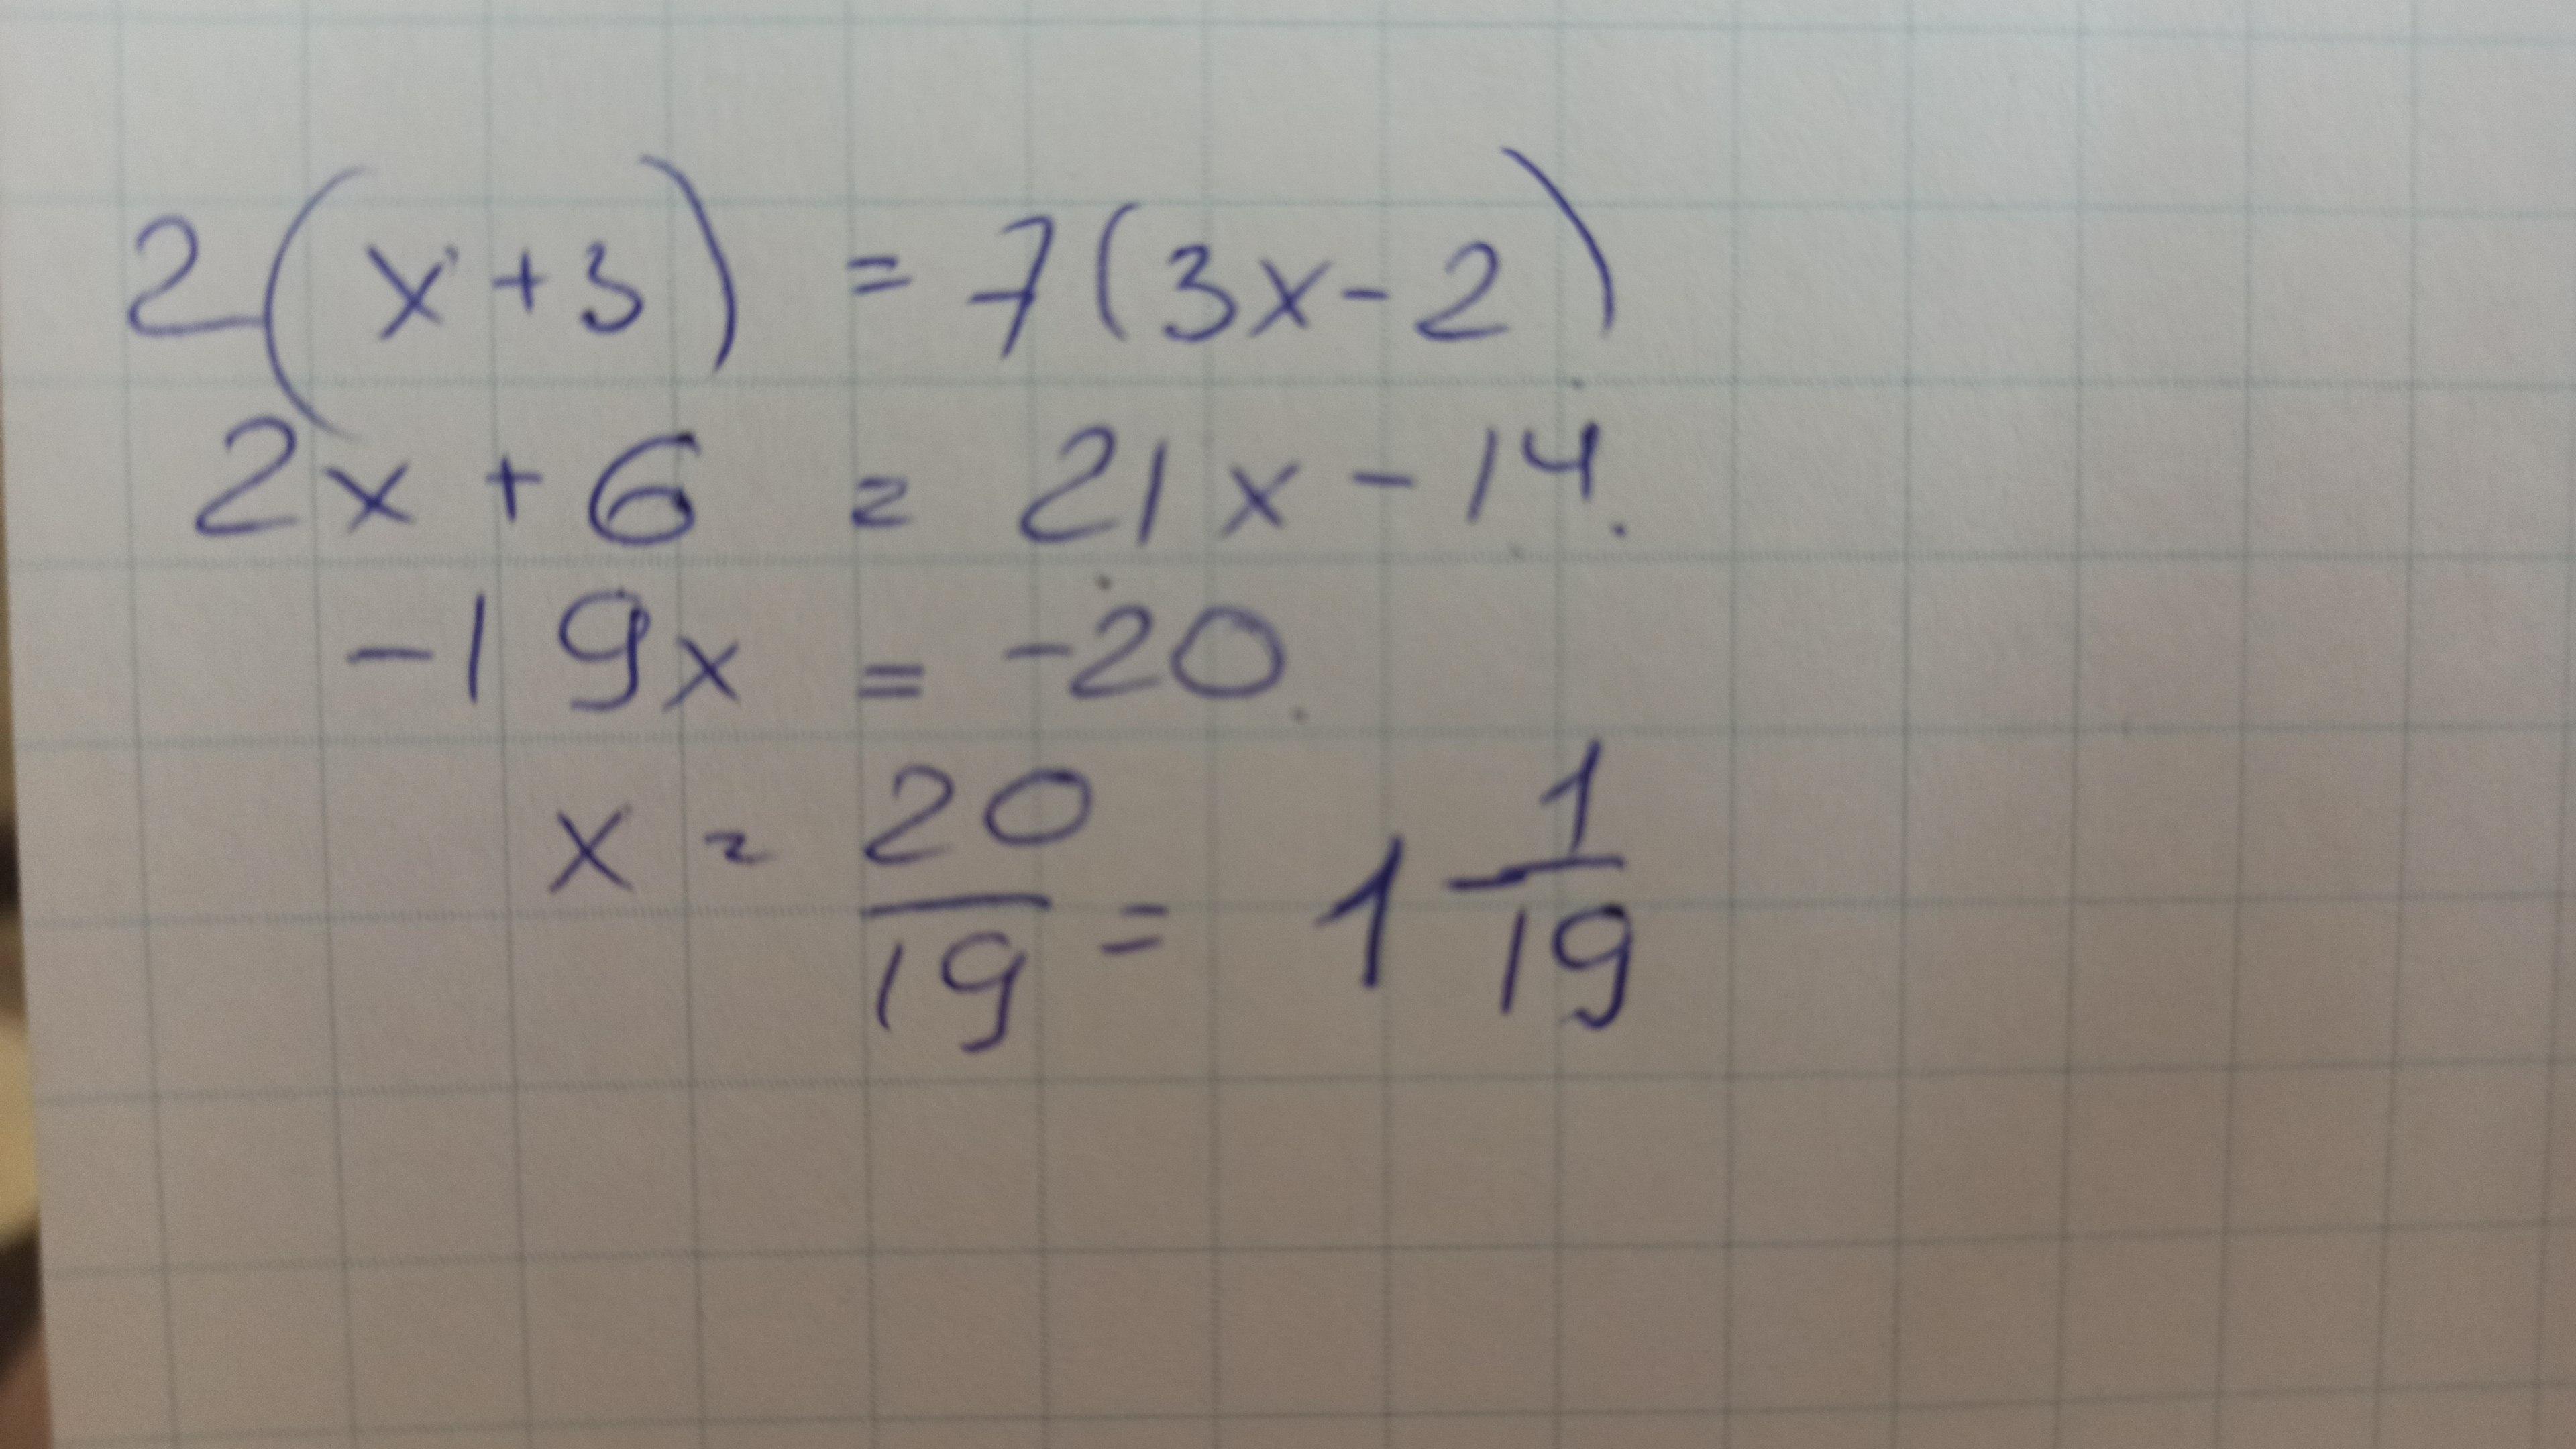 2(x+3) = 7(3x-2)
2x + 6 = 21x - 14.
-19x = -20.
x = 20/19 = 1 1/19